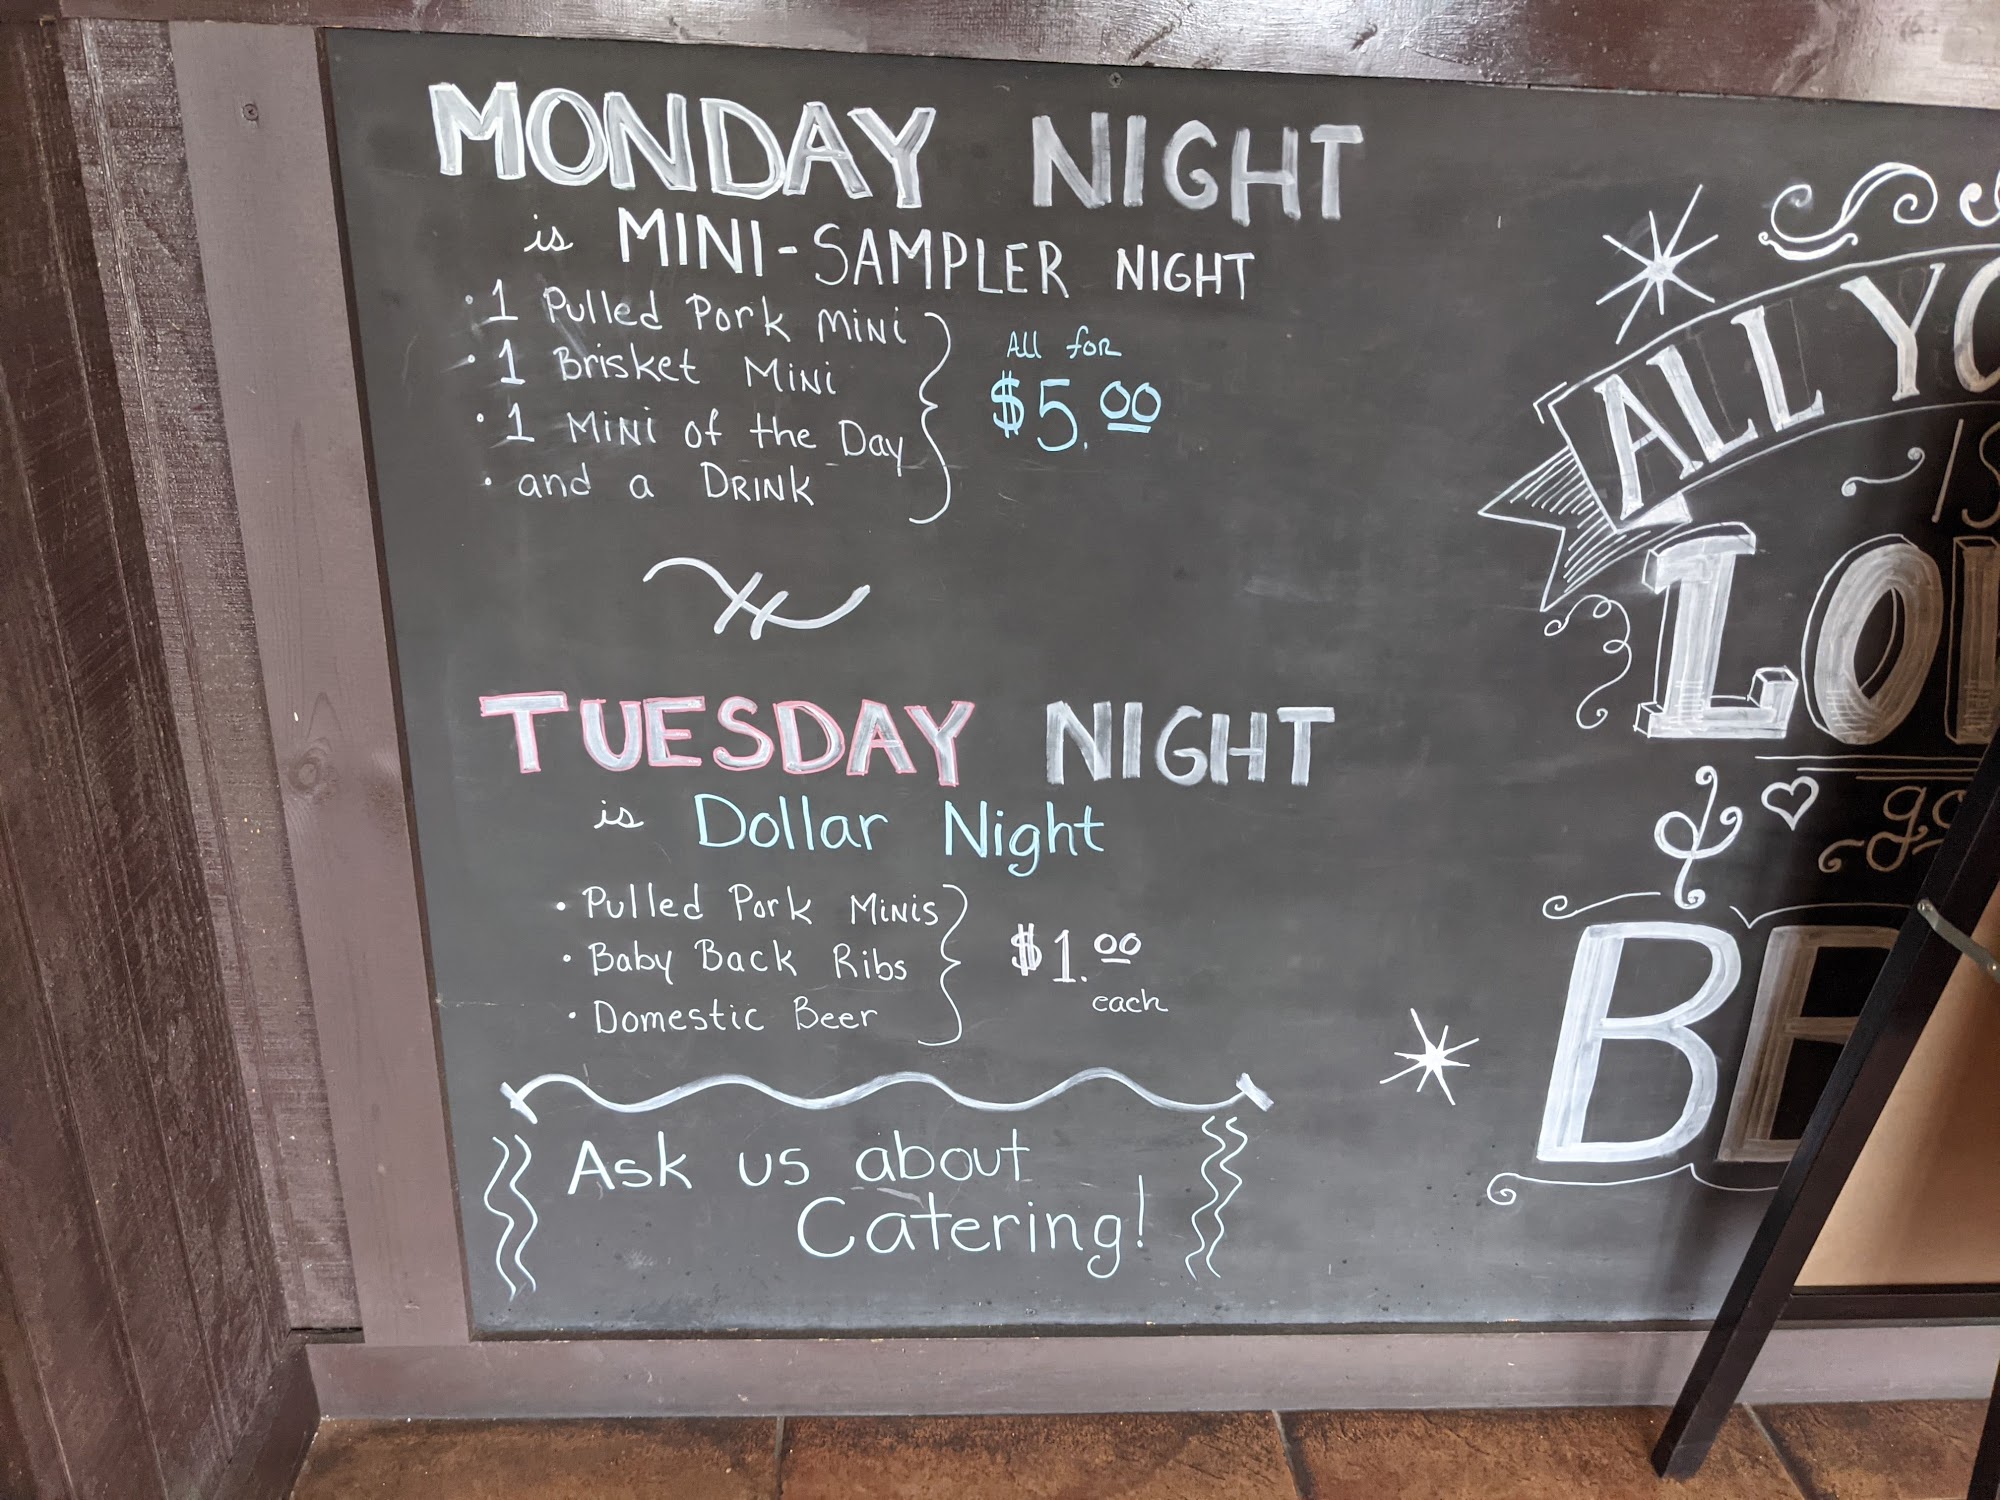 MONDAY NIGHT
is MINI-SAMPLER NIGHT
• 1 Pulled Pork MiNi
• 1 Brisket MiNi
• 1 MiNi of the Day
• and a DRINK
All for
$5.00
TUESDAY NIGHT
is Dollar Night
• Pulled Pork MiNis
• Baby Back Ribs
• Domestic Beer
$1.00
each
Ask us about
Catering!
ALL